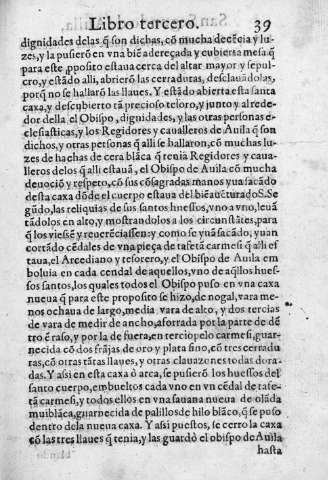 Libro tercero. 39
dignidades delas q̃ son dichas, cõ mucha decẽcia y lu-
zes, y la pusierõ en vna biẽ adereçada y cubierta mesa q̃
para este ꝓposito estaua cerca del altar mayor y sepul-
cro, y estãdo alli, abrierõ las cerraduras, desclauãdolas,
porq̃ no se hallarõ las llaues. Y estãdo abierta esta santa
caxa, y descubierto tã precioso tesoro, y junto y al rede-
dor della el Obispo, dignidades, y las otras personas e-
clesiasticas, y los Regidores y caualleros de Auila q̃ son
dichos, y otras personas q̃ alli se hallaron, cõ muchas lu-
zes de hachas de cera blãca q̃ tenia Regidores y caua-
lleros delos q̃ alli estauã, el Obispo de Auila cõ mucha
deuociõ y respeto, cõ sus cõsagradas manos yua sacãdo
desta caxa dõde el cuerpo estaua del biẽauẽturado S. Se
gũdo, las reliquias de sus santos huessos, vno a vno, leuã
tãdolos en alto, y mostrandolos a los circunstãtes, para
q̃ los viessẽ y reuerẽciassen: y como se yuã sacãdo, yuan
cortãdo cẽdales de vna pieça de tafetã carmesi q̃ alli es
taua, el Arcediano y tesorero, y el Obispo de Auila em
boluia en cada cendal de aquellos, vno de aq̃llos hues-
sos santos, los quales todos el Obispo puso en vna caxa
nueua q̃ para este proposito se hizo, de nogal, vara me-
nos ochaua de largo, media vara de alto, y dos tercias
de vara de medir de ancho, aforrada por la parte de dẽ
tro ẽ raso, y por la de fuera, en terciopelo carmesi, guar-
necida cõ dos frãjas de oro y plata fino, cõ tres cerradu
ras, cõ otras tãtas llaues, y otras clauazones todas dora-
das. Y assi en esta caxa ò arca, se pusierõ los huessos del
santo cuerpo, embueltos cada vno en vn cẽdal de tafe-
tã carmesi, y todos ellos en vna sauana nueua de olãda
mui blãca, guarnecida de palillos de hilo blãco, q̃ se puso
dentro dela nueua caxa. Y assi puestos, se cerro la caxa
cõ las tres llaues q̃ tenia, y las guardò el obispo de Auila
hasta